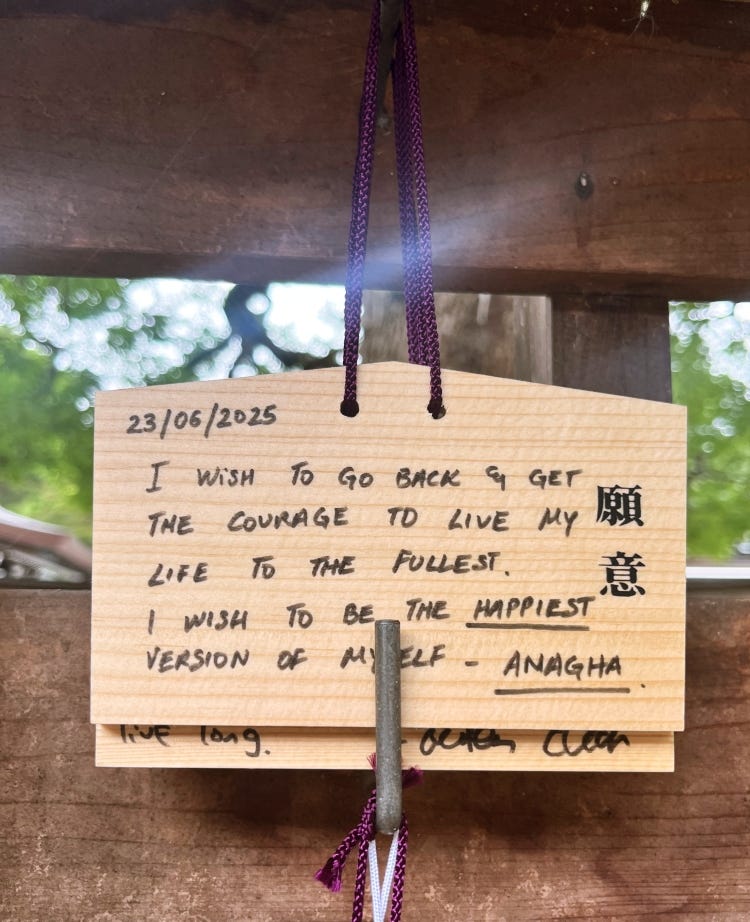 23/06/2025
I WISH TO GO BACK & GET
THE COURAGE TO LIVE MY
LIFE TO THE FULLEST.
I WISH TO BE THE HAPPIEST
VERSION OF MYSELF - ANAGHA.
願意
live long.